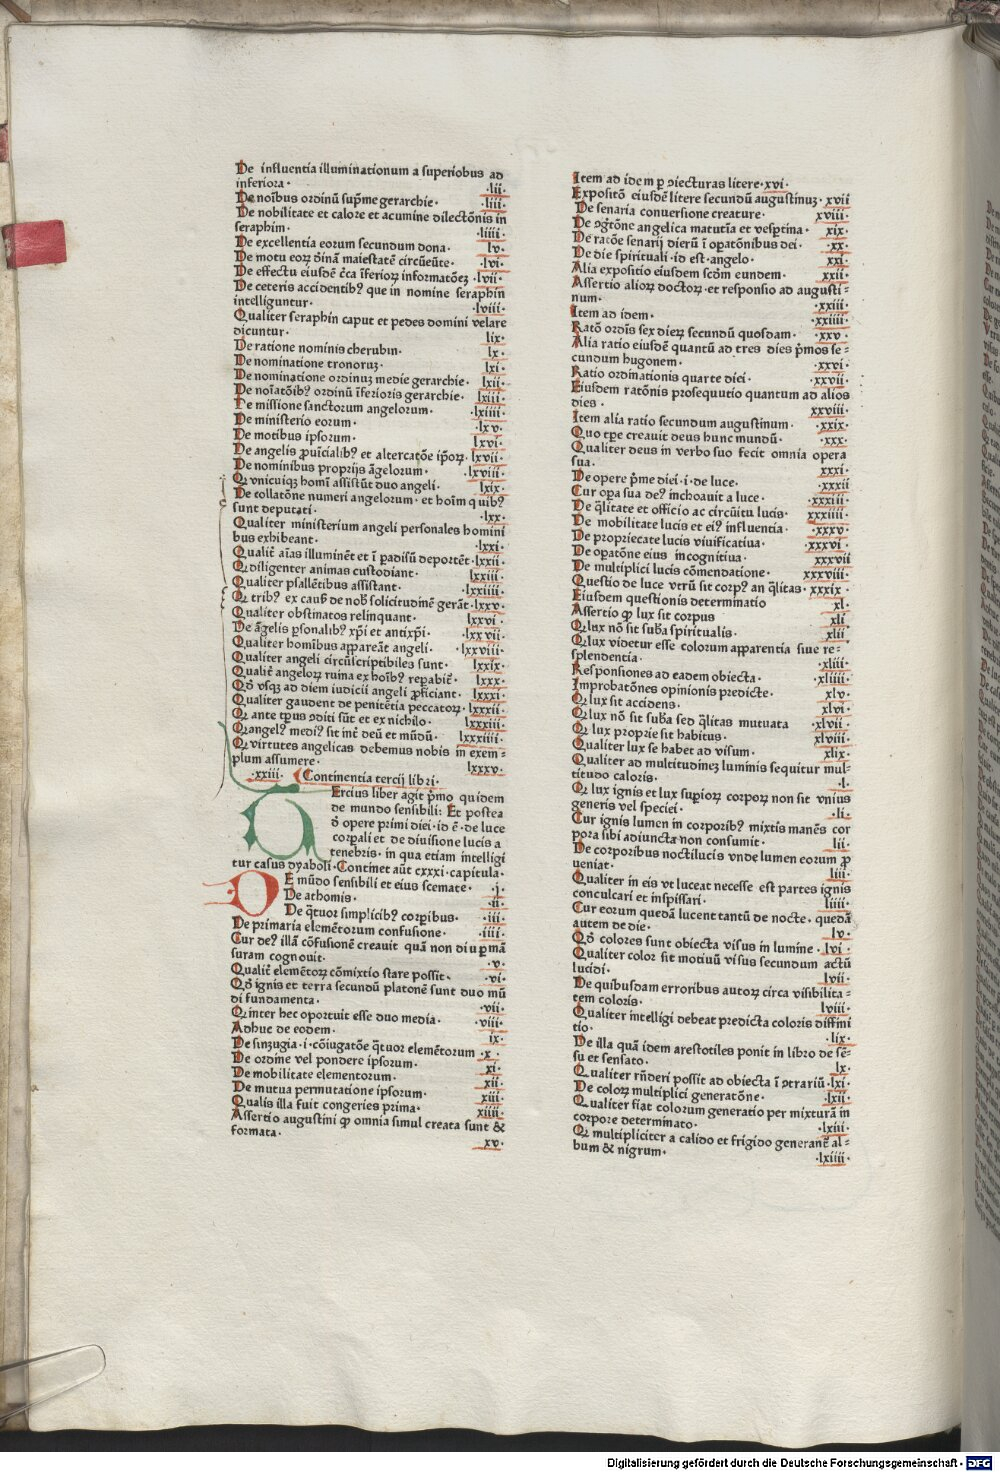 De influentia illuminationum a superiobus ad
inferiora· ·lii·
De noībus ordinū sup̄me gerarchie· ·liii·
De nobilitate et calore et acumine dilectōnis in
seraphim· ·liiii·
De excellentia eoꝝ secundum dona· lv·
De motu eoꝝ diīnā maiestatē circūeūte· ·lvi·
De effectu eiusdē c̄ca īferioꝝ informatōeꝫ ·lvii·
De ceteris accidentibꝰ que in nomine seraphin
intelliguntur· ·lviii·
Qualiter seraphin caput et pedes domini velare
dicuntur· lix·
De ratione nominis cherubin· lx·
De nominatione tronoruꝫ· lxi·
De nominatione ordinuꝫ medie gerarchie· lxii·
De noīatōibꝰ ordinū īferioris gerarchie· lxiii·
De missione sanctorum angelorum· ·lxiiii·
De ministerio eorum· lxv·
De motibus ipsorum· lxvi·
De angelis ꝓuīcialibꝰ et altercatōe ip̄oꝝ· lxvii·
De nominibus proprijs āgelorum· ·lxviii·
Qꝫ vnicuiqꝫ homī assistūt duo angeli· lxix·
De collatōne numeri angelorum· et hoīm quibꝰ
sunt deputati· ·lxx·
Qualiter ministerium angeli personales homini
bus exhibeant· ·lxxi·
Qualit̄ aīas illuminēt et ī ꝑadisū deportēt·lxxii·
Qꝫ diligenter animas custodiant· lxxiii·
Qualiter psallētibus assistant· ·lxxiiii·
Qꝫ tribꝰ ex causꝭ de nobꝭ solicitudinē gerāt·lxxv·
Qualiter obstinatos relinquant· lxxvi·
De āgelis ꝑsonalibꝰ xp̄i et antixp̄i· ·lxxvii·
Qualiter homībus appareāt angeli· ·lxxviii·
Qualiter angeli circūscriptibiles sunt· lxxix·
Qualit̄ angeloꝝ ruina ex hoībꝰ reꝑabit̄· lxxx·
Qō vsqꝫ ad diem iudicii angeli ꝓficiant· lxxxi·
Qualiter gaudent de penitētia peccatoꝝ· lxxxii·
Qꝫ ante tp̄us ꝯditi sūt et ex nichilo· lxxxiii·
Qꝫ angelꝰ mediꝰ sit int̄ deū et mūdū· lxxxiiii·
Qꝫ virtutes angelicas debemus nobis in exem=
plum assumere· lxxxv·
·xxiii· Continentia tercij libri·
Tercius liber agit p̄mo quidem
de mundo sensibili: Et postea
ō opere primi diei·id ē·de luce
corꝑali et de diuisione lucis a
tenebris·in qua etiam intelligi
tur casus dyaboli·Continet aūt cxxxi·capitula·
De mūdo sensibili et eius scemate· ·j·
De athomis· ·ii·
De q̄tuor simplicibꝰ corꝑibus· ·iii·
De primaria elemētorum confusione· ·iiii·
Cur deꝰ illā cōfusionē creauit quā non diu ꝑmā
suram cognouit· ·v·
Qualit̄ elemētoꝝ cōmixtio stare possit· ·vi·
Qō ignis et terra secundū platonē sunt duo mū
di fundamenta· ·vii·
Qꝫ inter hec oportuit esse duo media· ·viii·
Adhuc de eodem· ix·
De sinzugia·i·cōiugatōe q̄tuor elemētorum·x·
De ordine vel pondere ipsorum· xi·
De mobilitate elementorum· xii·
De mutua permutatione ipsorum· xiii·
Qualis illa fuit congeries prima· xiiii·
Assertio augustini ꝙ omnia simul creata sunt &
formata· xv·
Item ad idem ꝑ ꝯiecturas litere·xvi·
Expositō eiusdē litere secundū augustinuꝫ· xvii
De senaria conuersione creature· xviii·
De ꝯgitōne angelica matutīa et vesꝑtina· xix·
De ratōe senarij dierū ī oꝑatōnibus dei· ·xx·
De die spirituali·id est·angelo· xxi·
Alia expositio eiusdem scd̄m eundem· xxii·
Assertio alioꝝ doctoꝝ·et responsio ad augusti=
num· ·xxiii·
Item ad idem· ·xxiiii·
Ratō ordīs sex dieꝝ secundū quosdam· ·xxv·
Alia ratio eiusdē quantū ad tres dies p̄mos se=
cundum hugonem· ·xxvi·
Ratio ordinationis quarte diei· ·xxvii·
Eiusdem ratōnis prosequutio quantum ad alios
dies· xxviii·
Item alia ratio secundum augustinum· ·xxix·
Quo tp̄e creauit deus hunc mundū· ·xxx·
Qualiter deus in verbo suo fecit omnia opera
sua· xxxi·
De opere p̄me diei·i·de luce· ·xxxii
Cur oꝑa sua deꝰ inchoauit a luce· ·xxxiii·
De q̄litate et officio ac circūitu lucis· ·xxxiiii·
De mobilitate lucis et eiꝰ influentia· ·xxxv·
De propriecate lucis viuificatiua· ·xxxvi·
De oꝑatōne eius incognitiua· xxxvii
De multiplici lucis cōmendatione· xxxviii·
Questio de luce vtrū sit corpꝰ an q̄litas·xxxix·
Eiusdem questionis determinatio xl·
Assertio ꝙ lux sit corpus xli·
Qꝫ lux nō sit subsꝭa spiritualis· xlii
Qꝫ lux videtur esse colorum apparentia siue re=
splendentia· xliii·
Responsiones ad eadem obiecta· ·xliiii·
Improbatōnes opinionis predicte· xlv·
Qꝫ lux sit accidens· xlvi·
Qꝫ lux nō sit subsꝭa sed q̄litas mutuata ·xlvii·
Qꝫ lux proprie sit habitus· xlviii·
Qualiter lux se habet ad visum· xlix·
Qualiter ad multitudineꝫ luminis sequitur mul=
titudo caloris· ·l·
Qꝫ lux ignis et lux suꝑioꝝ corpoꝝ non sit vnius
generis vel speciei· ·li·
Cur ignis lumen in corporibꝰ mixtis manēs cor
pora sibi adiuncta non consumit· lii·
De corporibus noctilucis vnde lumen eorum ꝓ
ueniat· liii·
Qualiter in eis vt luceat necesse est partes ignis
conculcari et inspissari· liiii·
Cur eorum quedā lucent tantū de nocte· quedā
autem de die· lv·
Qō colores sunt obiecta visus in lumine·lvi·
Qualiter color sit motiuū visus secundum actū
lucidi· lvii·
De quibusdam erroribus autoꝝ circa visibilita=
tem coloris· lviii·
Qualiter intelligi debeat predicta coloris diffini
tio· ·lix·
De illa quā idem arestotiles ponit in libro de sē=
su et sensato· lx·
Qualiter rn̄deri possit ad obiecta ī ꝯtrariū·lxi·
De coloꝝ multiplici generatōne· ·lxii·
Qualiter fiat colorum generatio per mixturā in
corpore determinato· ·lxiii·
Qꝫ multipliciter a calido et frigido generant̄ al=
bum & nigrum· ·lxiiii·
Digitalisierung gefördert durch die Deutsche Forschungsgemeinschaft - DFG